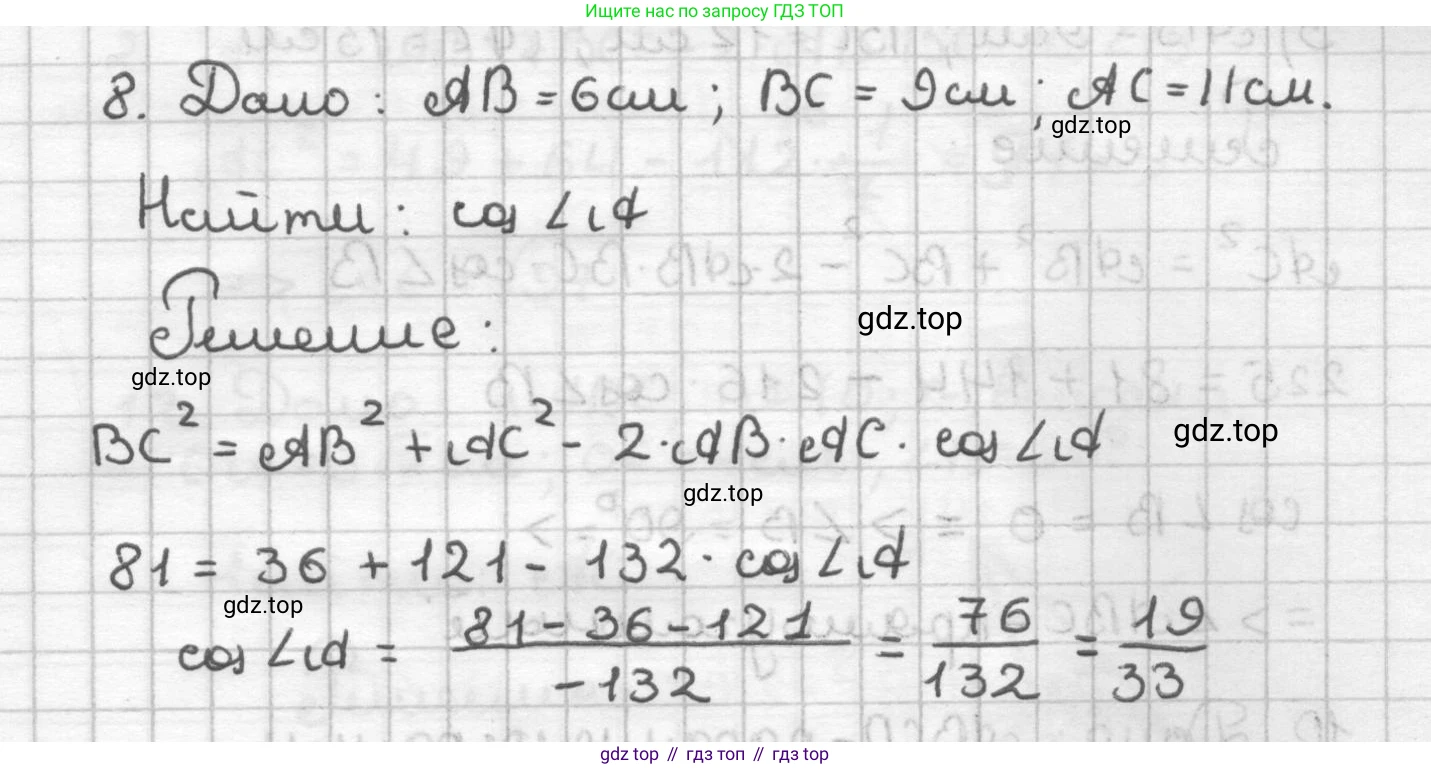 Ищите нас по запросу ГДЗ ТОП
8. Дано: AB = 6 см; BC = 9 см; AC = 11 см.
gdz.top
Найти: cos ∠A
Решение:
gdz.top
gdz.top
BC² = AB² + AC² - 2·AB·AC· cos ∠A
gdz.top
gdz.top
81 = 36 + 121 - 132· cos ∠A
gdz.top
cos ∠A = (81 - 36 - 121)/(-132) = 76/132 = 19/33
gdz top // гдз топ // gdz top